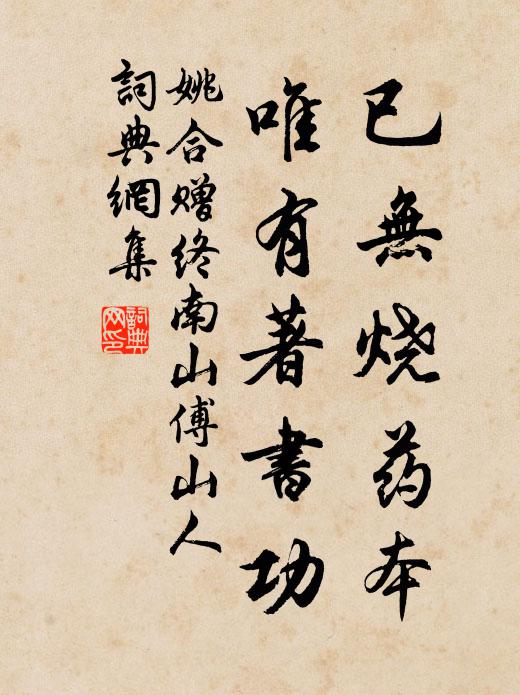 已無烧药本
唯有著書功
姚合赠终南山傅山人
詞典網集
詞典网印